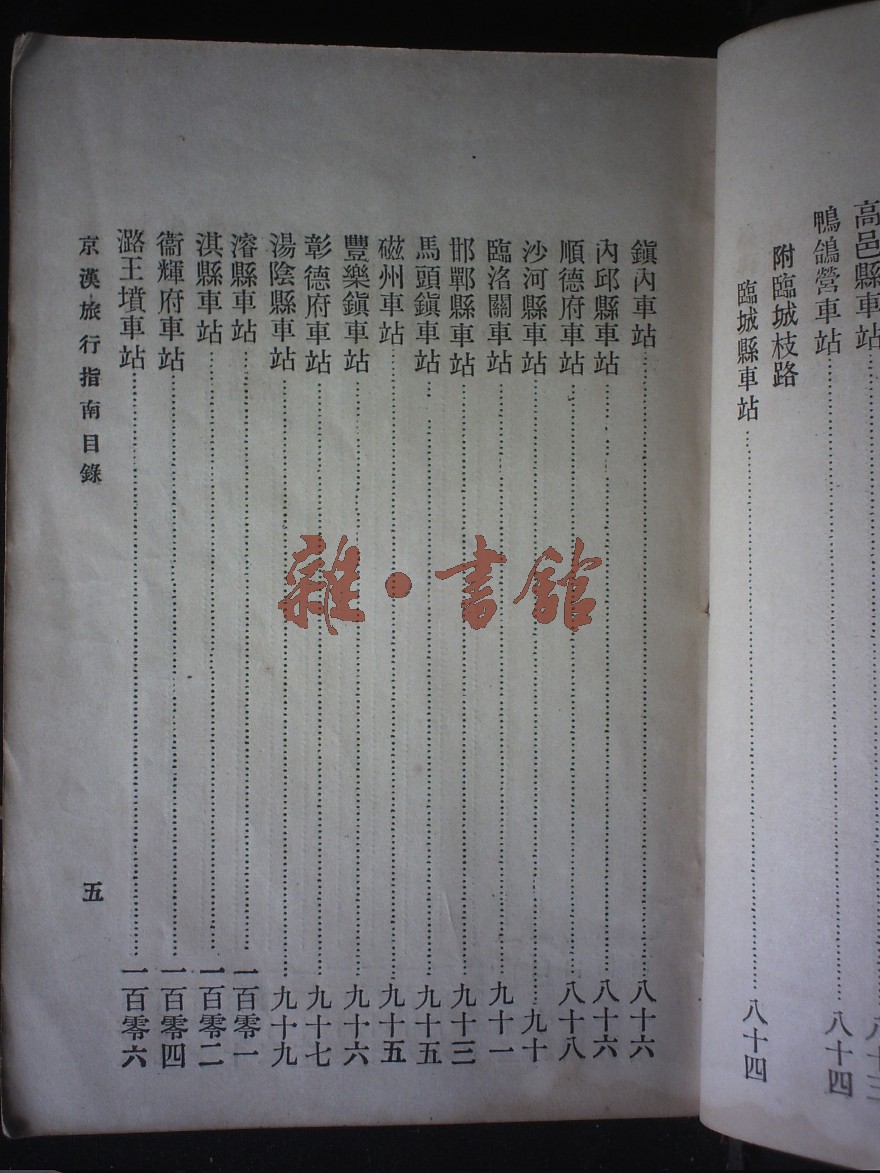 高邑縣車站
鴨鴿營車站……八十四
附臨城枝路
臨城縣車站……八十四
鎭內車站……八十六
內邱縣車站……八十六
順德府車站……八十八
沙河縣車站……九十
臨洛關車站……九十一
邯鄲縣車站……九十三
馬頭鎭車站……九十五
磁州車站……九十五
豐樂鎭車站……九十六
彰德府車站……九十七
湯陰縣車站……九十九
濬縣車站……一百零一
淇縣車站……一百零二
衞輝府車站……一百零四
潞王墳車站……一百零六
京漢旅行指南目錄
五
雜·書館